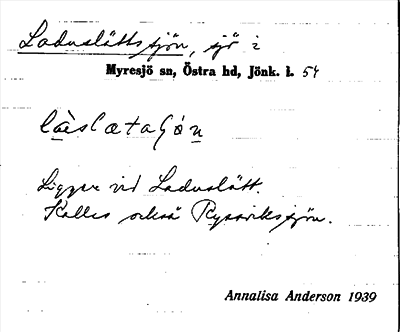 Laduslättssjön, sjö i
Myresjö sn, Östra hd, Jönk. l. 54
Ligger vid Laduslätt.
Kallas också Ryssviksjön.
Annalisa Anderson 1939